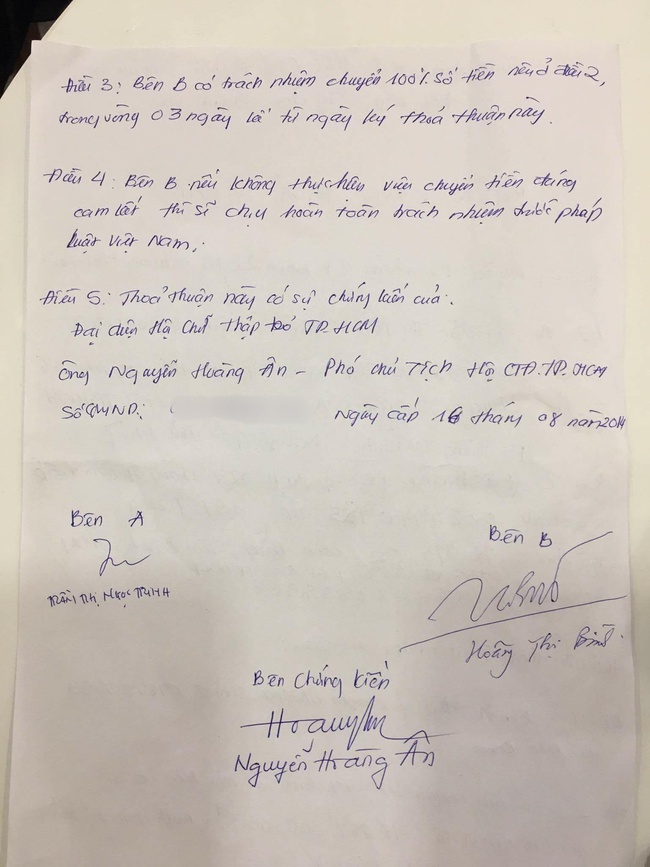 Điều 3: Bên B có trách nhiệm chuyển 100% số tiền nêu ở điều 2,
trong vòng 03 ngày kể từ ngày ký thoả thuận này.
Điều 4: Bên B nếu không thực hiện việc chuyển tiền đúng
cam kết thì sẽ chịu hoàn toàn trách nhiệm trước pháp
luật Việt Nam.
Điều 5: Thoả thuận này có sự chứng kiến của:
Đại diện Hội Chữ thập đỏ TP.HCM
Ông Nguyễn Hoàng Ân - Phó chủ Tịch Hội CTĐ.TP.HCM
Số CMND:
Ngày cấp 16 tháng 08 năm 2014
Bên A
Bên B
TRẦN THỊ NGỌC TRINH
Hoàng Thị
Bên chứng kiến
Nguyễn Hoàng Ân